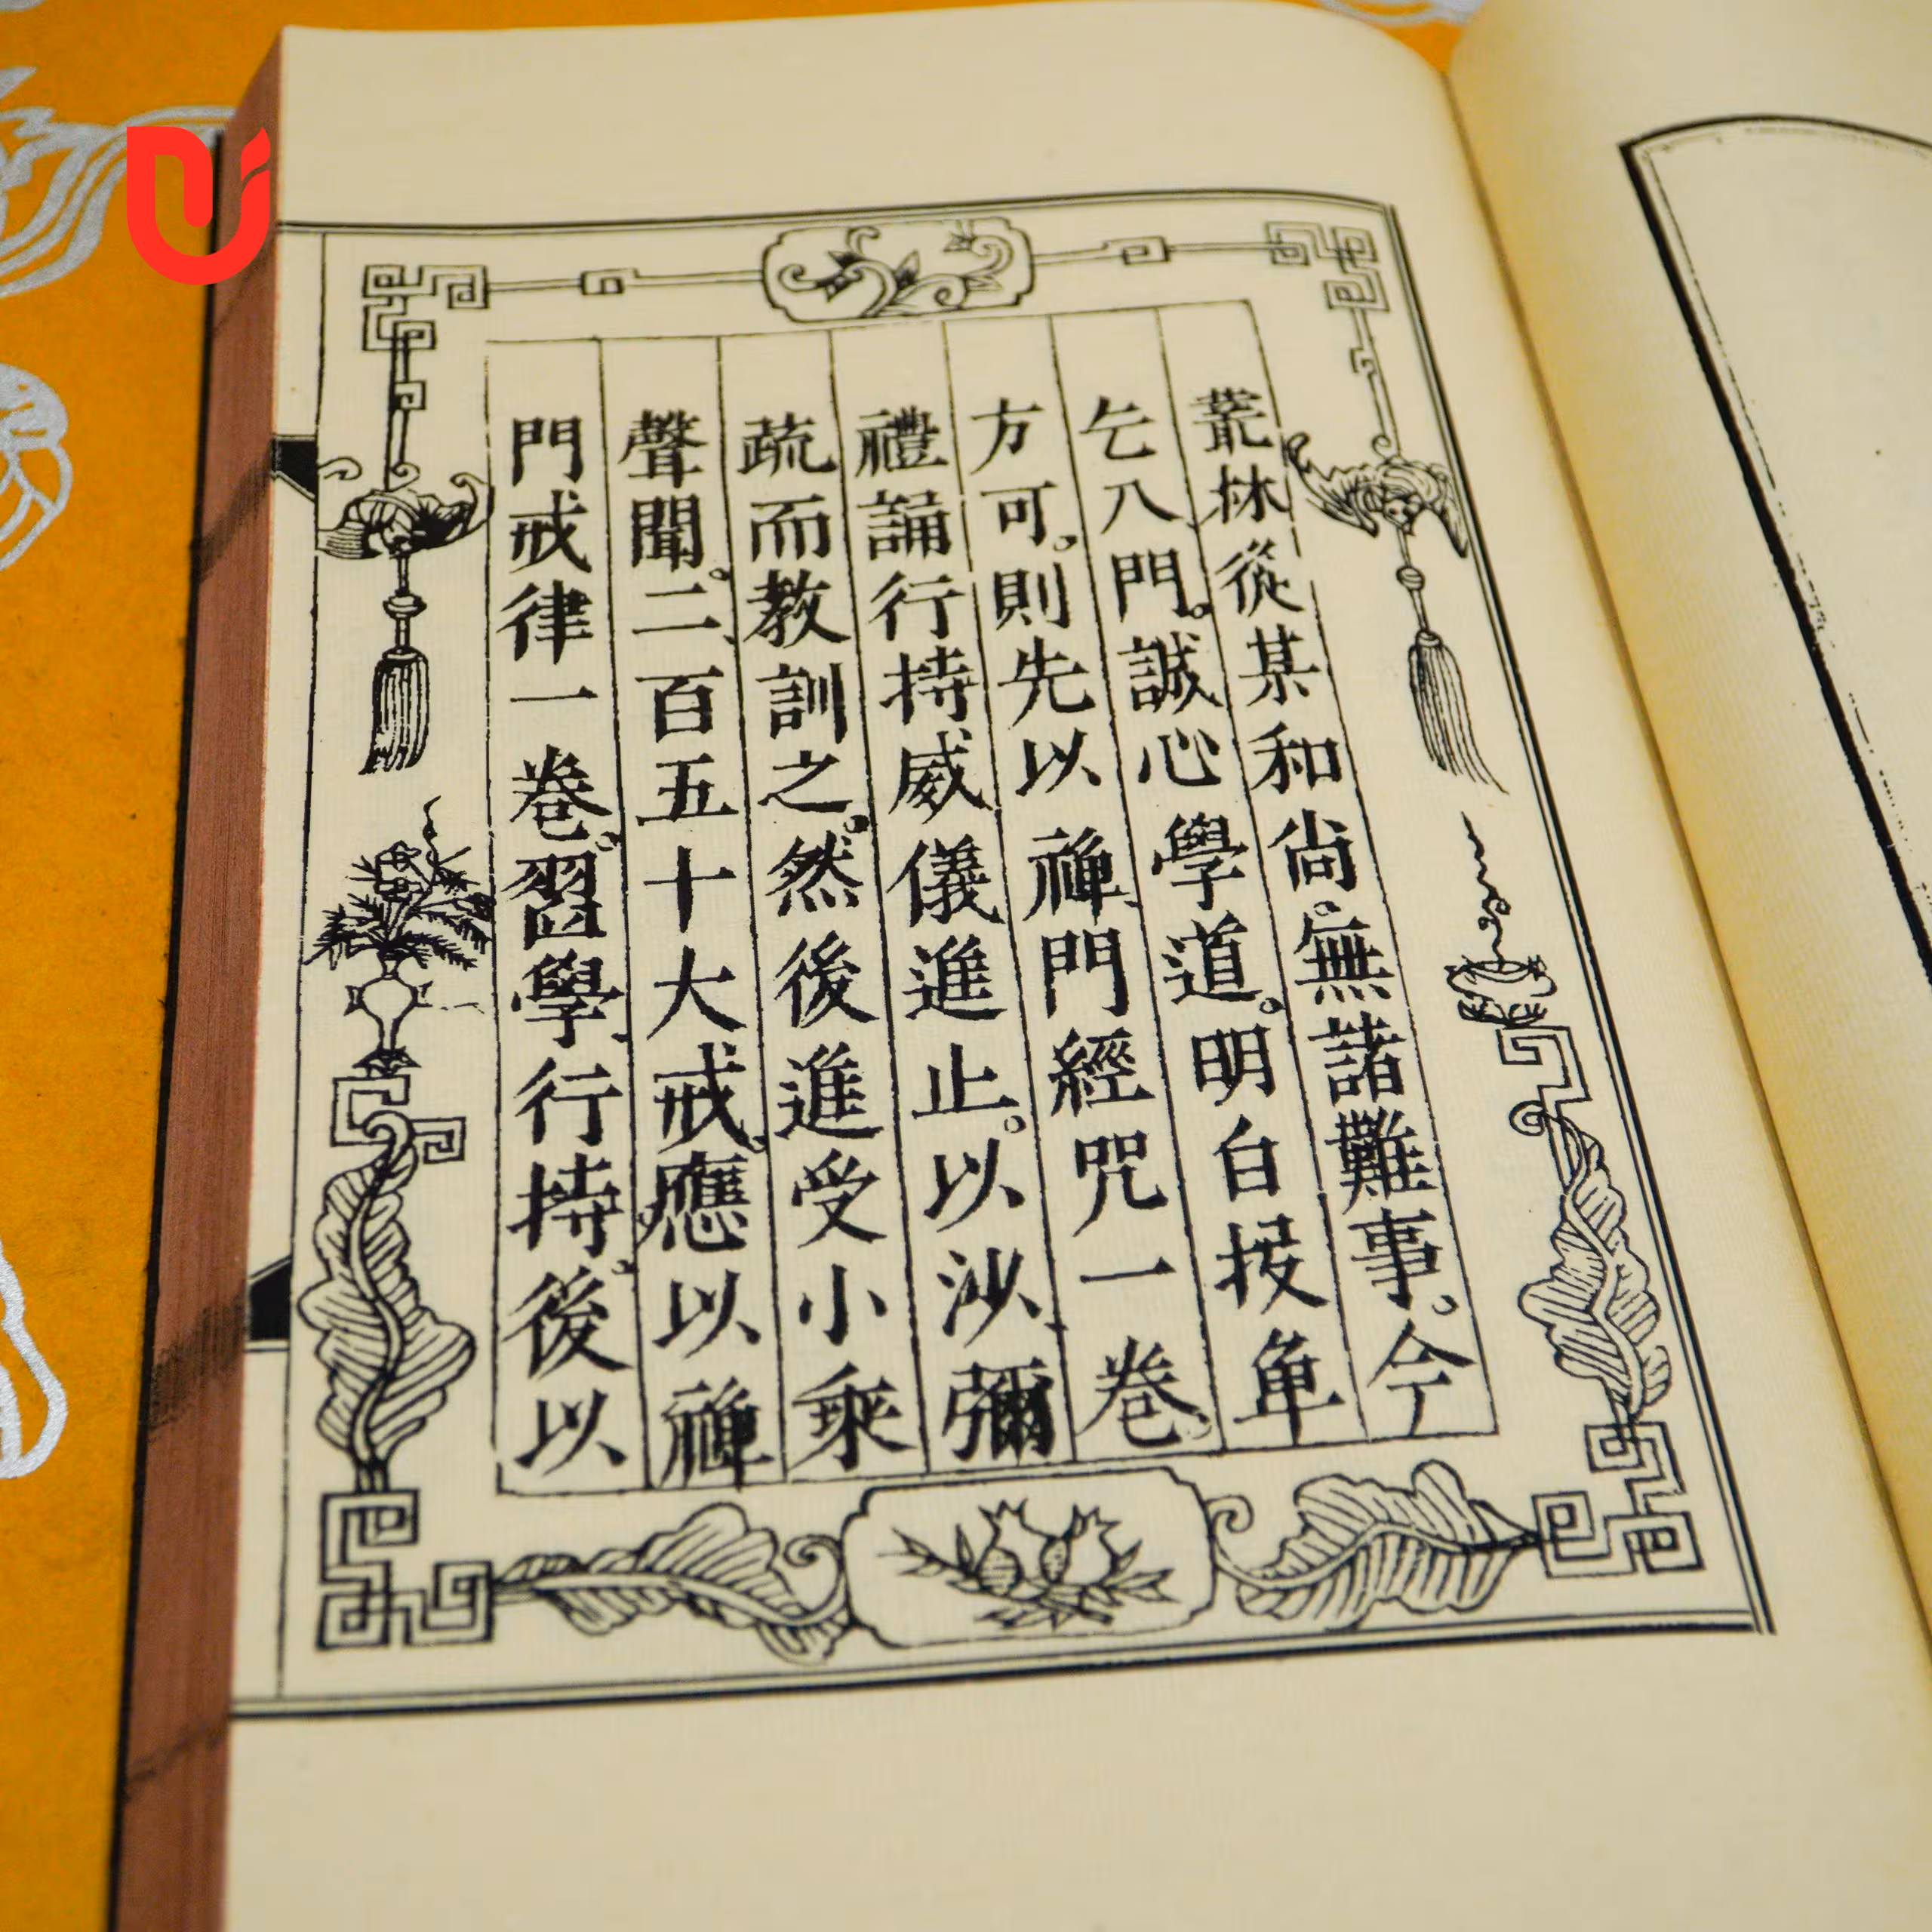 叢林從某和尚。無諸難事。今
乞入門。誠心學道。明白投單
方可。則先以禪門經咒一卷、
禮誦行持威儀進止。以沙彌
疏而教訓之。然後進受小乘
聲聞。二百五十大戒。應以禪
門戒律一卷。習學行持。後以